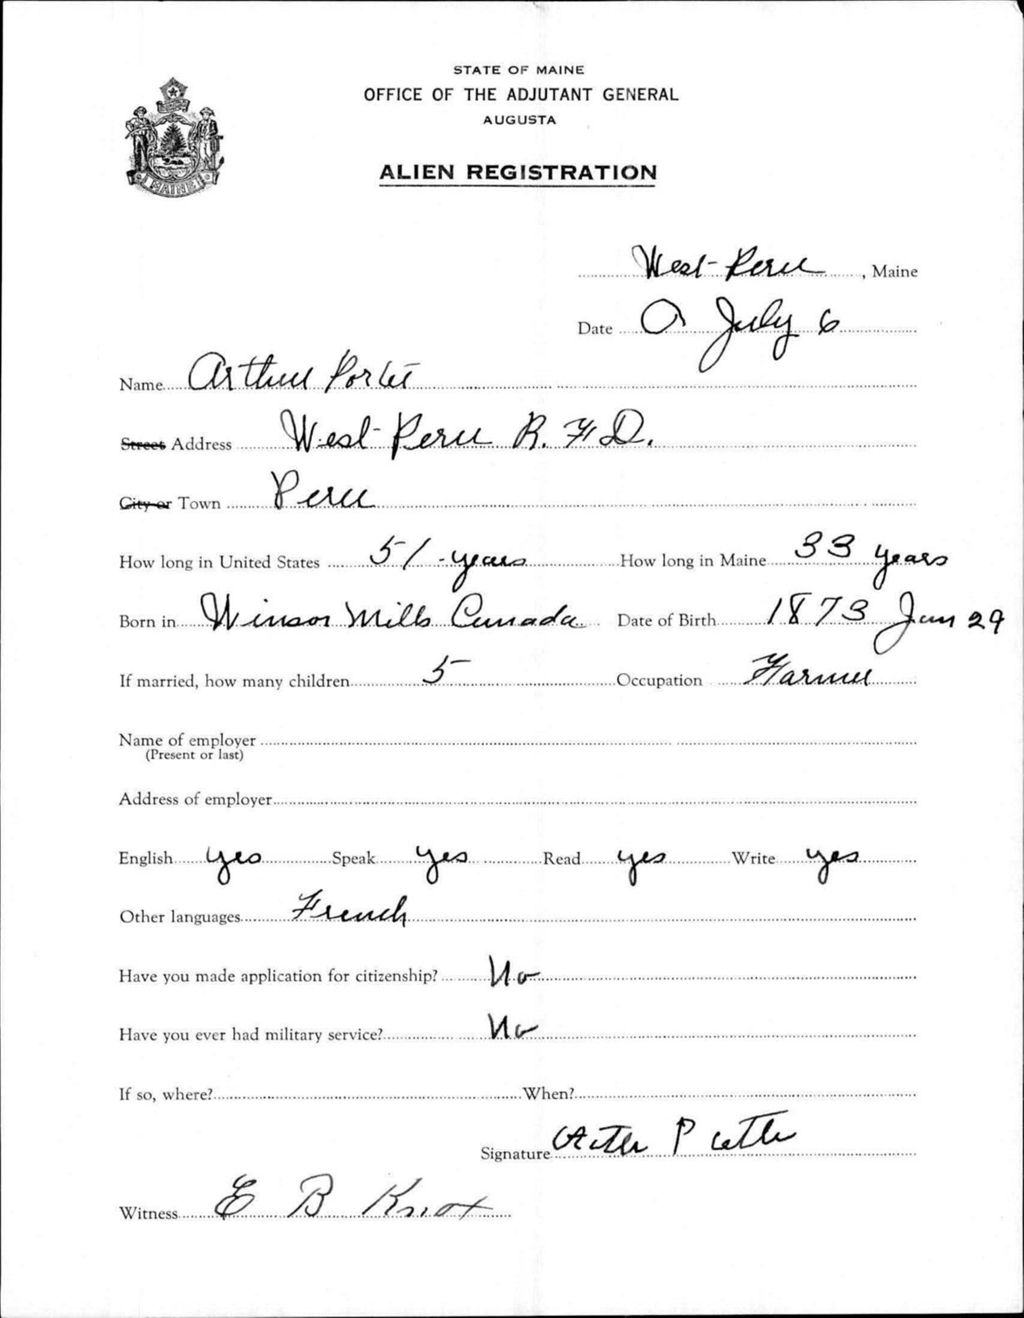 STATE OF MAINE
OFFICE OF THE ADJUTANT GENERAL
AUGUSTA
MAINE
ALIEN REGISTRATION
West-Peru, Maine
Date July 6
Name Arthur
Street Address West-Peru R.F.D.
City or Town Peru
How long in United States 51-years How long in Maine 33 years
Born in Winsor Mills Canada Date of Birth 1873 Jan 29
If married, how many children 5 Occupation Farmer
Name of employer
(Present or last)
Address of employer
English yes Speak yes Read yes Write yes
Other languages French
Have you made application for citizenship? No
Have you ever had military service? No
If so, where? When?
Signature
Witness E B Knox